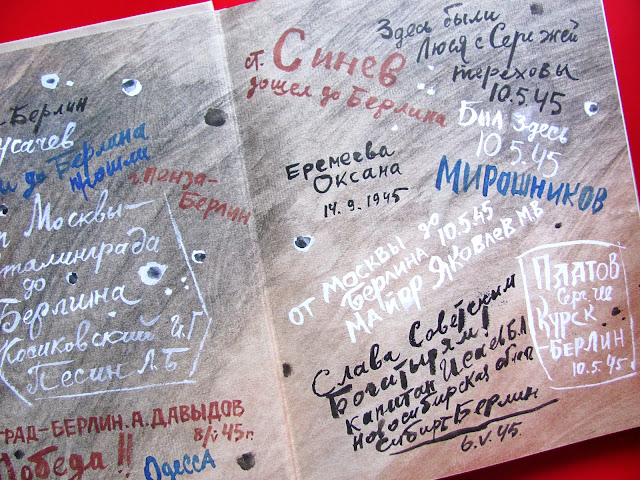 -Берлин
усачев
и до Берлина
дошли
г. Пенза-
Берлин
Москвы-
талинграда
до
Берлина
Косиковский И.Г
Песин Л.Б.
РАД-БЕРЛИН. А. ДАВЫДОВ
8/V 45г.
Победа!!
Одесса
ст. Синев
дошел до Берлина
Здесь были
Люся с Сережей
Тереховы
10.5.45
Был здесь
10.5.45
МИРОШНИКОВ
Еремеева
Оксана
14.9.1945
от Москвы до
Берлина 10.5.45
Майор Яковлев МВ
Платов
Сергие
Курск
-БЕРЛИН
10.5.45
Слава Советским
Богатырям!
капитан Исаев Б.А
Новосибирская обл
Сибирь Берлин
6.V.45.